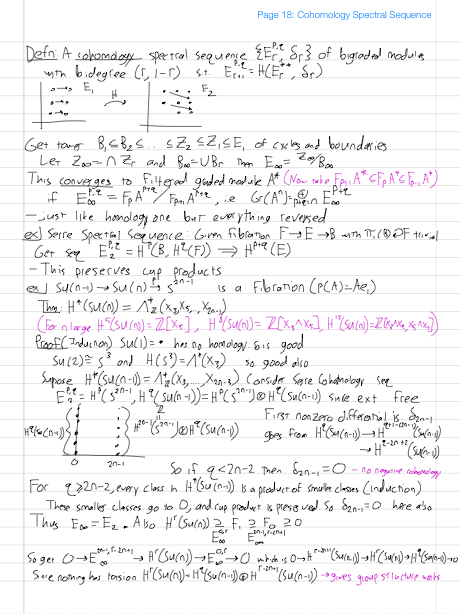 Page 18: Cohomology Spectral Sequence
Defn: A cohomology spectral sequence {E_r^{p,q}, δ_r} of bigraded modules
with bidegree (r, 1-r) s.t. E_{r+1}^{p,q} = H(E_r^{**}, δ_r)
E_1 H E_2
Get tower B_1 ≤ B_2 ≤ ... ≤ Z_2 ≤ Z_1 ≤ E_1 of cycles and boundaries
Let Z_∞ = ∩ Z_r and B_∞ = ∪ B_r then E_∞ = Z_∞/B_∞
This converges to filtered graded module A* (Now take F_{p+1} A* ≤ F_p A* ≤ F_{p-1} A*)
if E_∞^{p,q} = F_p A^{p+q} / F_{p+1} A^{p+q}, i.e. Gr(A^n) = ⊕_{p+q=n} E_∞^{p,q}
- Just like homology one but everything reversed
ex) Serre Spectral Sequence: Given fibration F → E → B with π_1(B) ↻ F trivial
Get seq E_2^{p,q} = H^p(B, H^q(F)) ⟹ H^{p+q}(E)
- This preserves cup products
ex) SU(n-1) → SU(n) →^p S^{2n-1} is a fibration (p(A) = Ae_1)
Thm: H*(SU(n)) = Λ*_Z (x_3, x_5, ..., x_{2n-1})
Proof (Induction) SU(1) = • has no homology & is good
SU(2) ≅ S^3 and H(S^3) = Λ*(x_3) so good also
Suppose H*(SU(n-1)) = Λ*_Z (x_3, ..., x_{2n-3}) Consider Serre Cohomology Seq
E_2^{p,q} = H^p(S^{2n-1}, H^q(SU(n-1))) = H^p(S^{2n-1}) ⊗ H^q(SU(n-1)) since ext free
First nonzero differential is δ_{2n-1}
H^q(SU(n-1)) H^{2n-1}(S^{2n-1}) ⊗ H^q(SU(n-1)) goes from H^q(SU(n-1)) → H^{q+1-(2n-1)}(SU(n-1))
→ H^{q-2n+2}(SU(n-1))
0 2n-1
So if q < 2n-2 then δ_{2n-1} = 0 - no negative cohomology
For q ≥ 2n-2, every class in H^q(SU(n-1)) is a product of smaller classes (induction)
These smaller classes go to 0, and cup product is preserved. So δ_{2n-1} = 0 here also
Thus E_∞ = E_2. Also H^r(SU(n)) ≥ F_1 ≥ F_0 ≥ 0
E_∞^{0,r} E_∞^{2n-1,r-2n+1}
So get 0 → E_∞^{2n-1,r-2n+1} → H^r(SU(n)) → E_∞^{0,r} → 0 which is 0 → H^{r-2n+1}(SU(n-1)) → H^r(SU(n)) → H^r(SU(n-1)) → 0
Since nothing has torsion H^r(SU(n)) = H^r(SU(n-1)) ⊕ H^{r-2n+1}(SU(n-1)) → gives group structure works